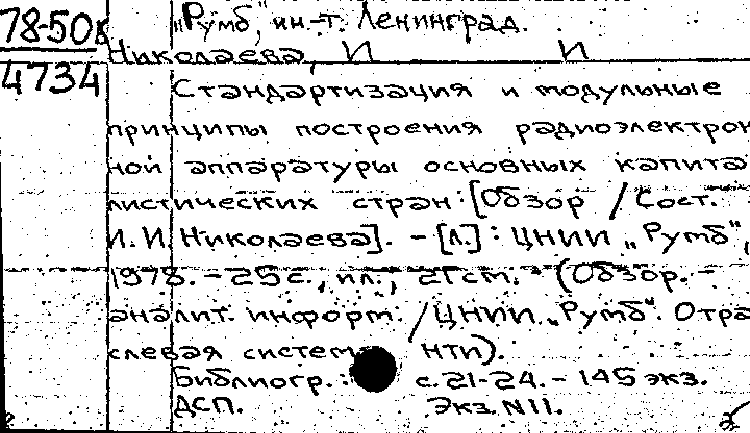 78-50к „Румб", ин-т. Ленинград.
Николаева, И И
4734
Стандартизация и модульные
принципы построения радиоэлектрон
ной аппаратуры основных капита
листических стран: [Обзор / Сост.
И. И. Николаева]. – [Л.]: ЦНИИ „Румб",
1978. – 25 с., ил., 21 см. – (Обзор. –
аналит. информ. / ЦНИИ „Румб". Отра
слевая система НТИ).
Библиогр.: с. 21-24. – 145 экз.
ДСП. Экз. N 11.